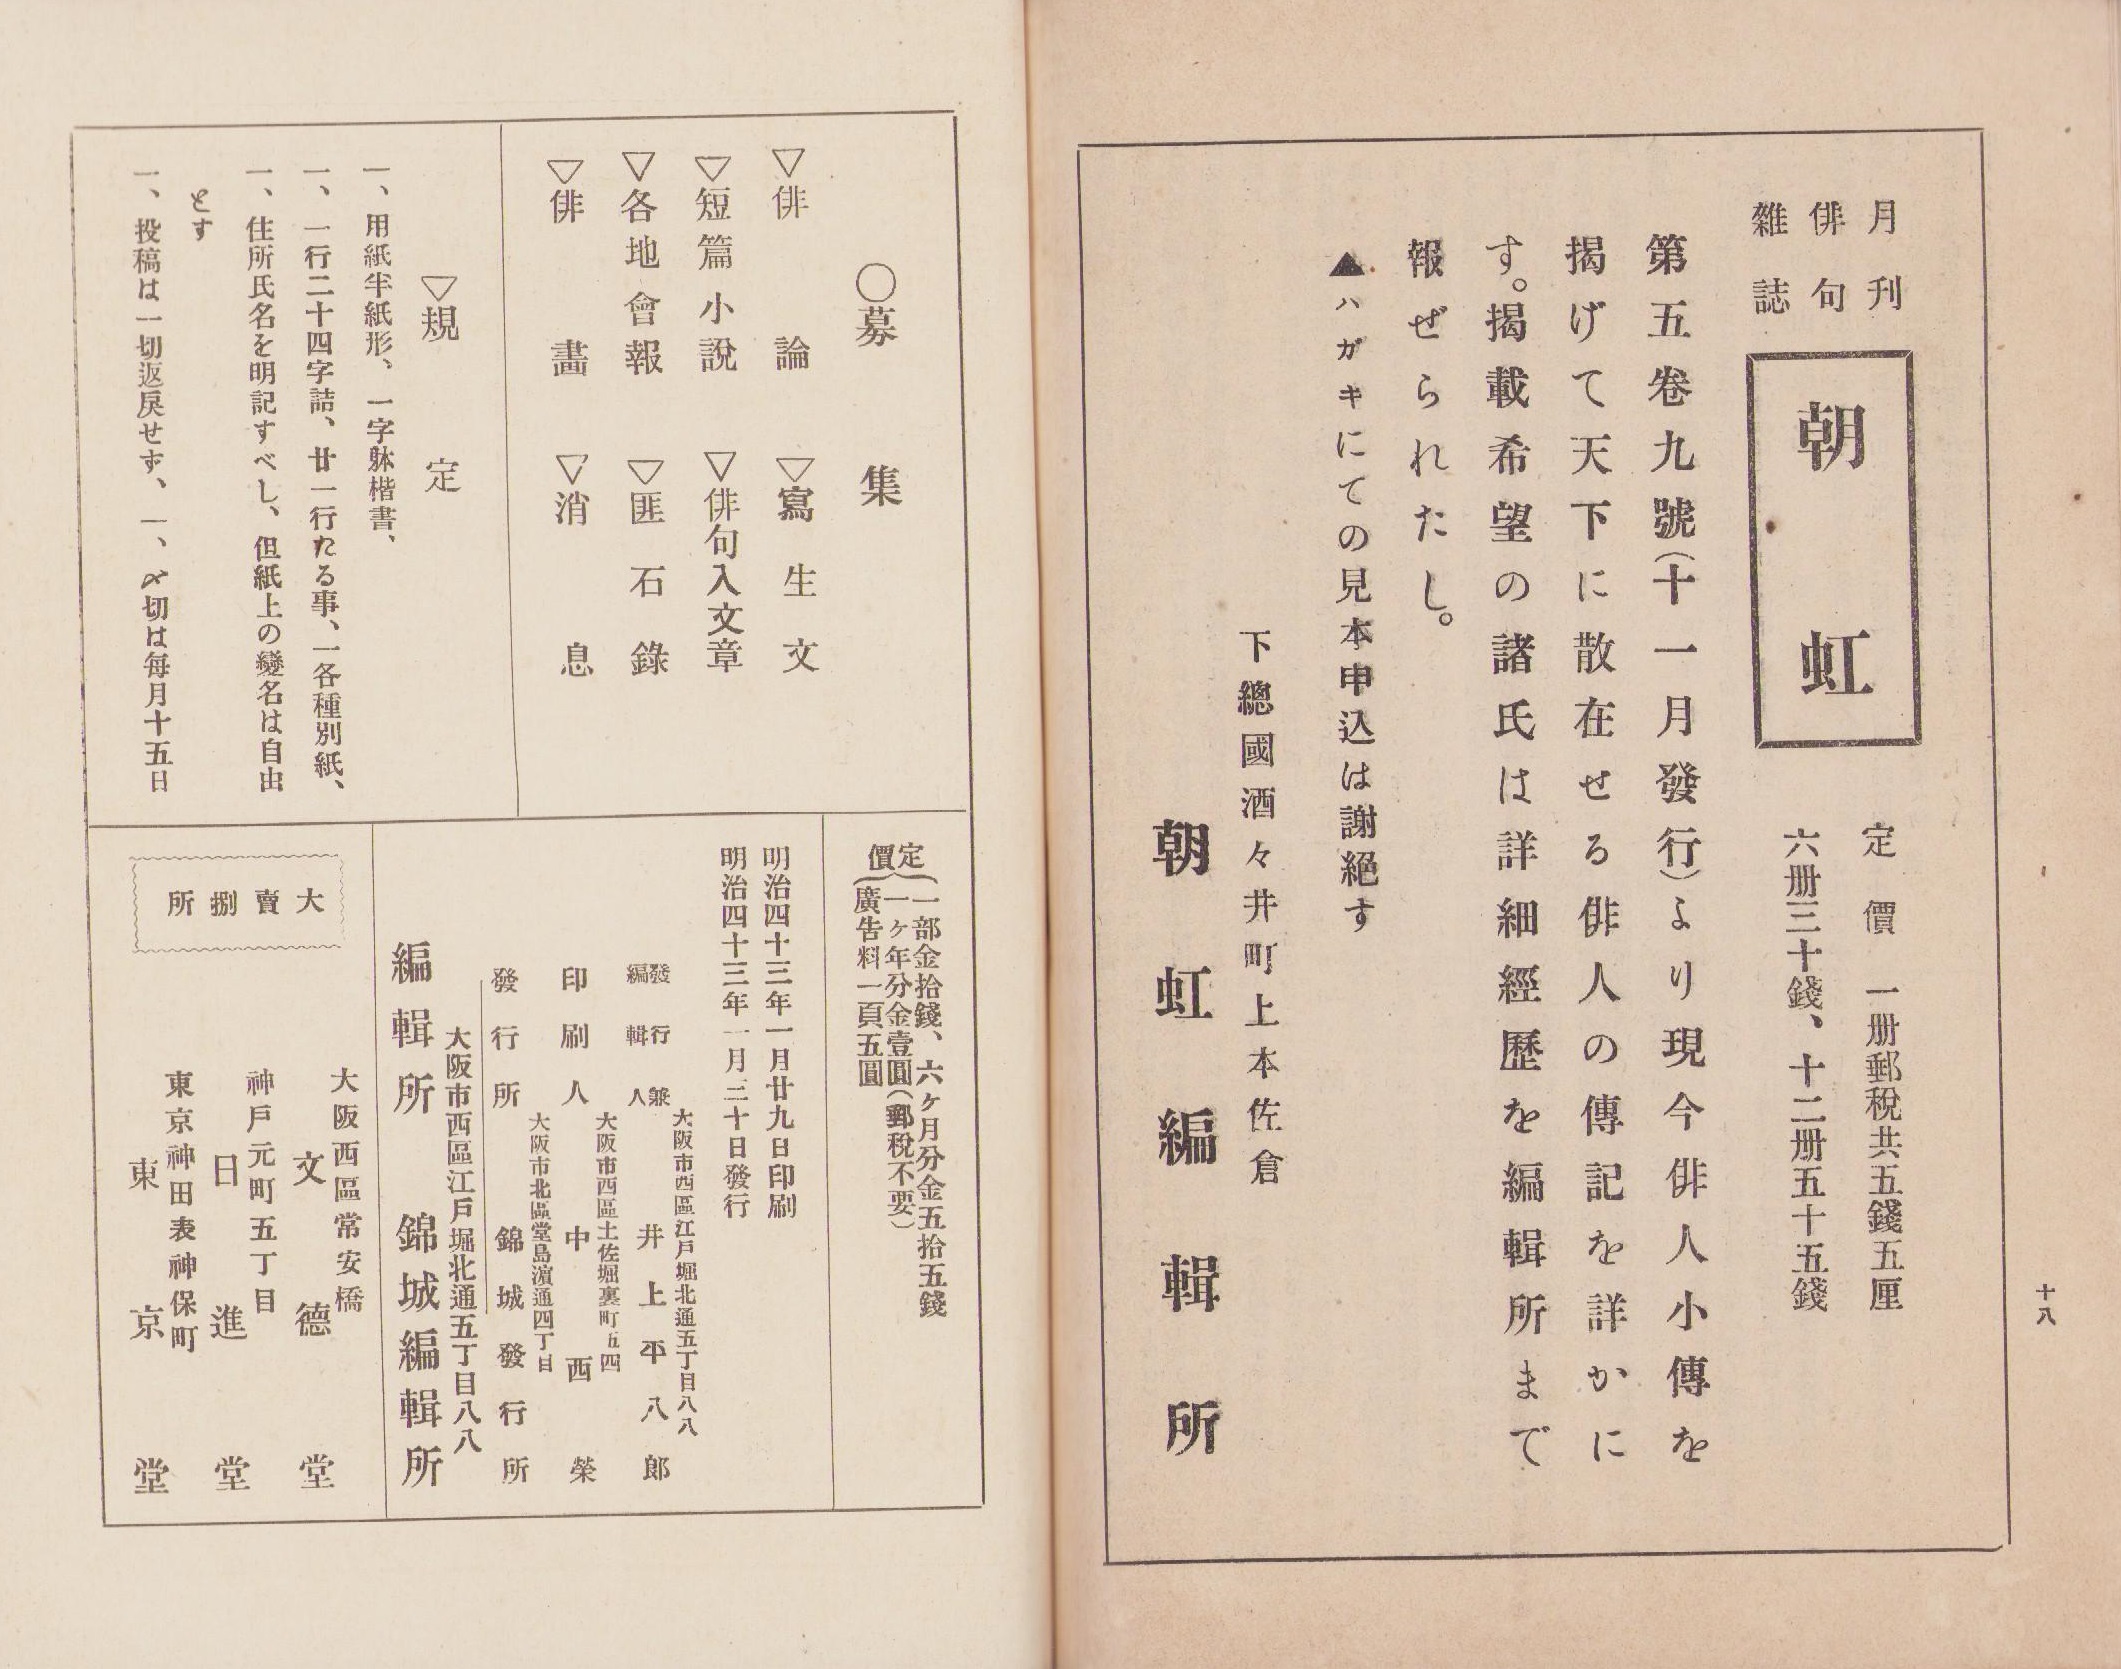 十八
月刊
俳句
雜誌
朝虹
定價 一册郵税共五錢五厘
六册三十錢、十二册五十五錢
第五卷九號(十一月發行)より現今俳人小傳を
揭げて天下に散在せる俳人の傳記を詳かに
す。揭載希望の諸氏は詳細經歷を編輯所まで
報ぜられたし。
▲ハガキにての見本申込は謝絕す
下總國酒々井町上本佐倉
朝虹編輯所
○募集
▽俳論 ▽寫生文
▽短篇小說 ▽俳句入文章
▽各地會報 ▽匪石錄
▽俳畫 ▽消息
▽規定
一、用紙半紙形、一字躰楷書、
一、一行二十四字詰、廿一行たる事、一各種別紙、
一、住所氏名を明記すべし、但紙上の變名は自由
とす
一、投稿は一切返戻せず、一、〆切は每月十五日
定價
一部金拾錢、六ヶ月分金五拾五錢
一ヶ年分金壹圓(郵税不要)
廣告料一頁五圓
明治四十三年一月廿九日印刷
明治四十三年一月二十日發行
大阪市西區江戸堀北通五丁目八八
發行兼
編輯人 井上平八郎
大阪市西區土佐堀裏町五四
印刷人 中西榮
大阪市北區堂島濵通四丁目
發行所 錦城發行所
大阪市西區江戸堀北通五丁目八八
編輯所 錦城編輯所
大賣捌所
大阪西區常安橋
文德堂
神戸元町五丁目
日進堂
東京神田表神保町
東京堂